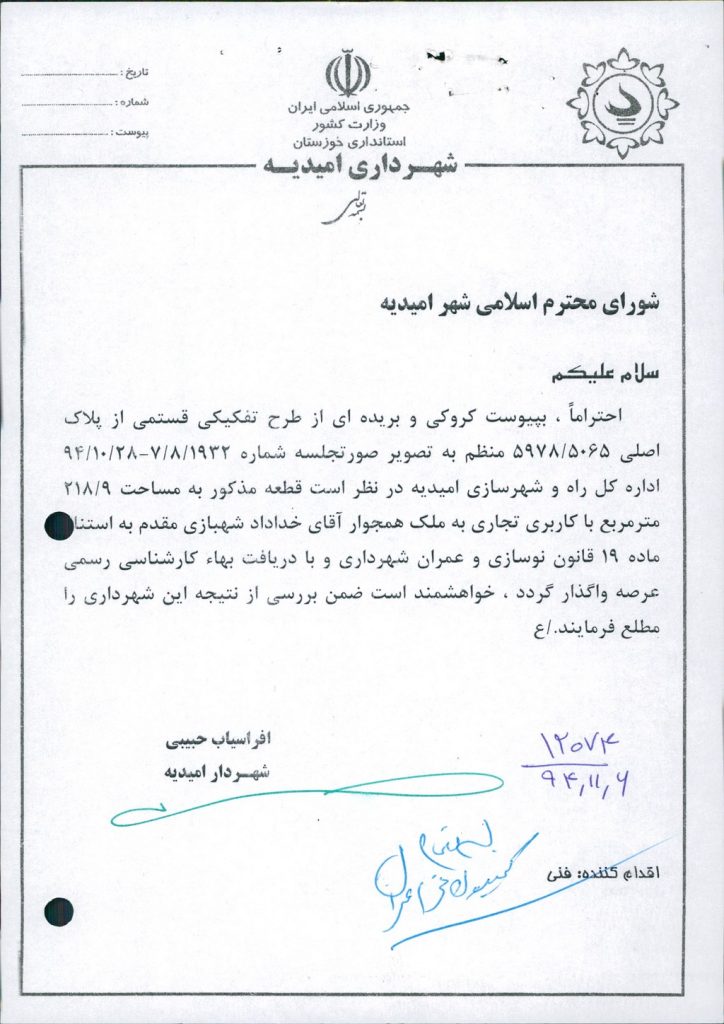 تاریخ :
شماره :
پیوست :
جمهوری اسلامی ایران
وزارت کشور
استانداری خوزستان
شهرداری امیدیه
بسمه تعالی
شورای محترم اسلامی شهر امیدیه
سلام علیکم
احتراماً ، بپیوست کروکی و بریده ای از طرح تفکیکی قستمی از پلاک
اصلی ۵۹۷۸/۵۰۶۵ منظم به تصویر صورتجلسه شماره ۷/۸/۱۹۳۲-۹۴/۱۰/۲۸
اداره کل راه و شهرسازی امیدیه در نظر است قطعه مذکور به مساحت ۲۱۸/۹
مترمربع با کاربری تجاری به ملک همجوار آقای خداداد شهبازی مقدم به استنا
ماده ۱۹ قانون نوسازی و عمران شهرداری و با دریافت بهاء کارشناسی رسمی
عرصه واگذار گردد ، خواهشمند است ضمن بررسی از نتیجه این شهرداری را
مطلع فرمایند./ع
افراسیاب حبیبی
شهردار امیدیه
۱۲۰۷۴
۹۴,۱۱,۶
اقدام کننده: فنی
کمیسیون